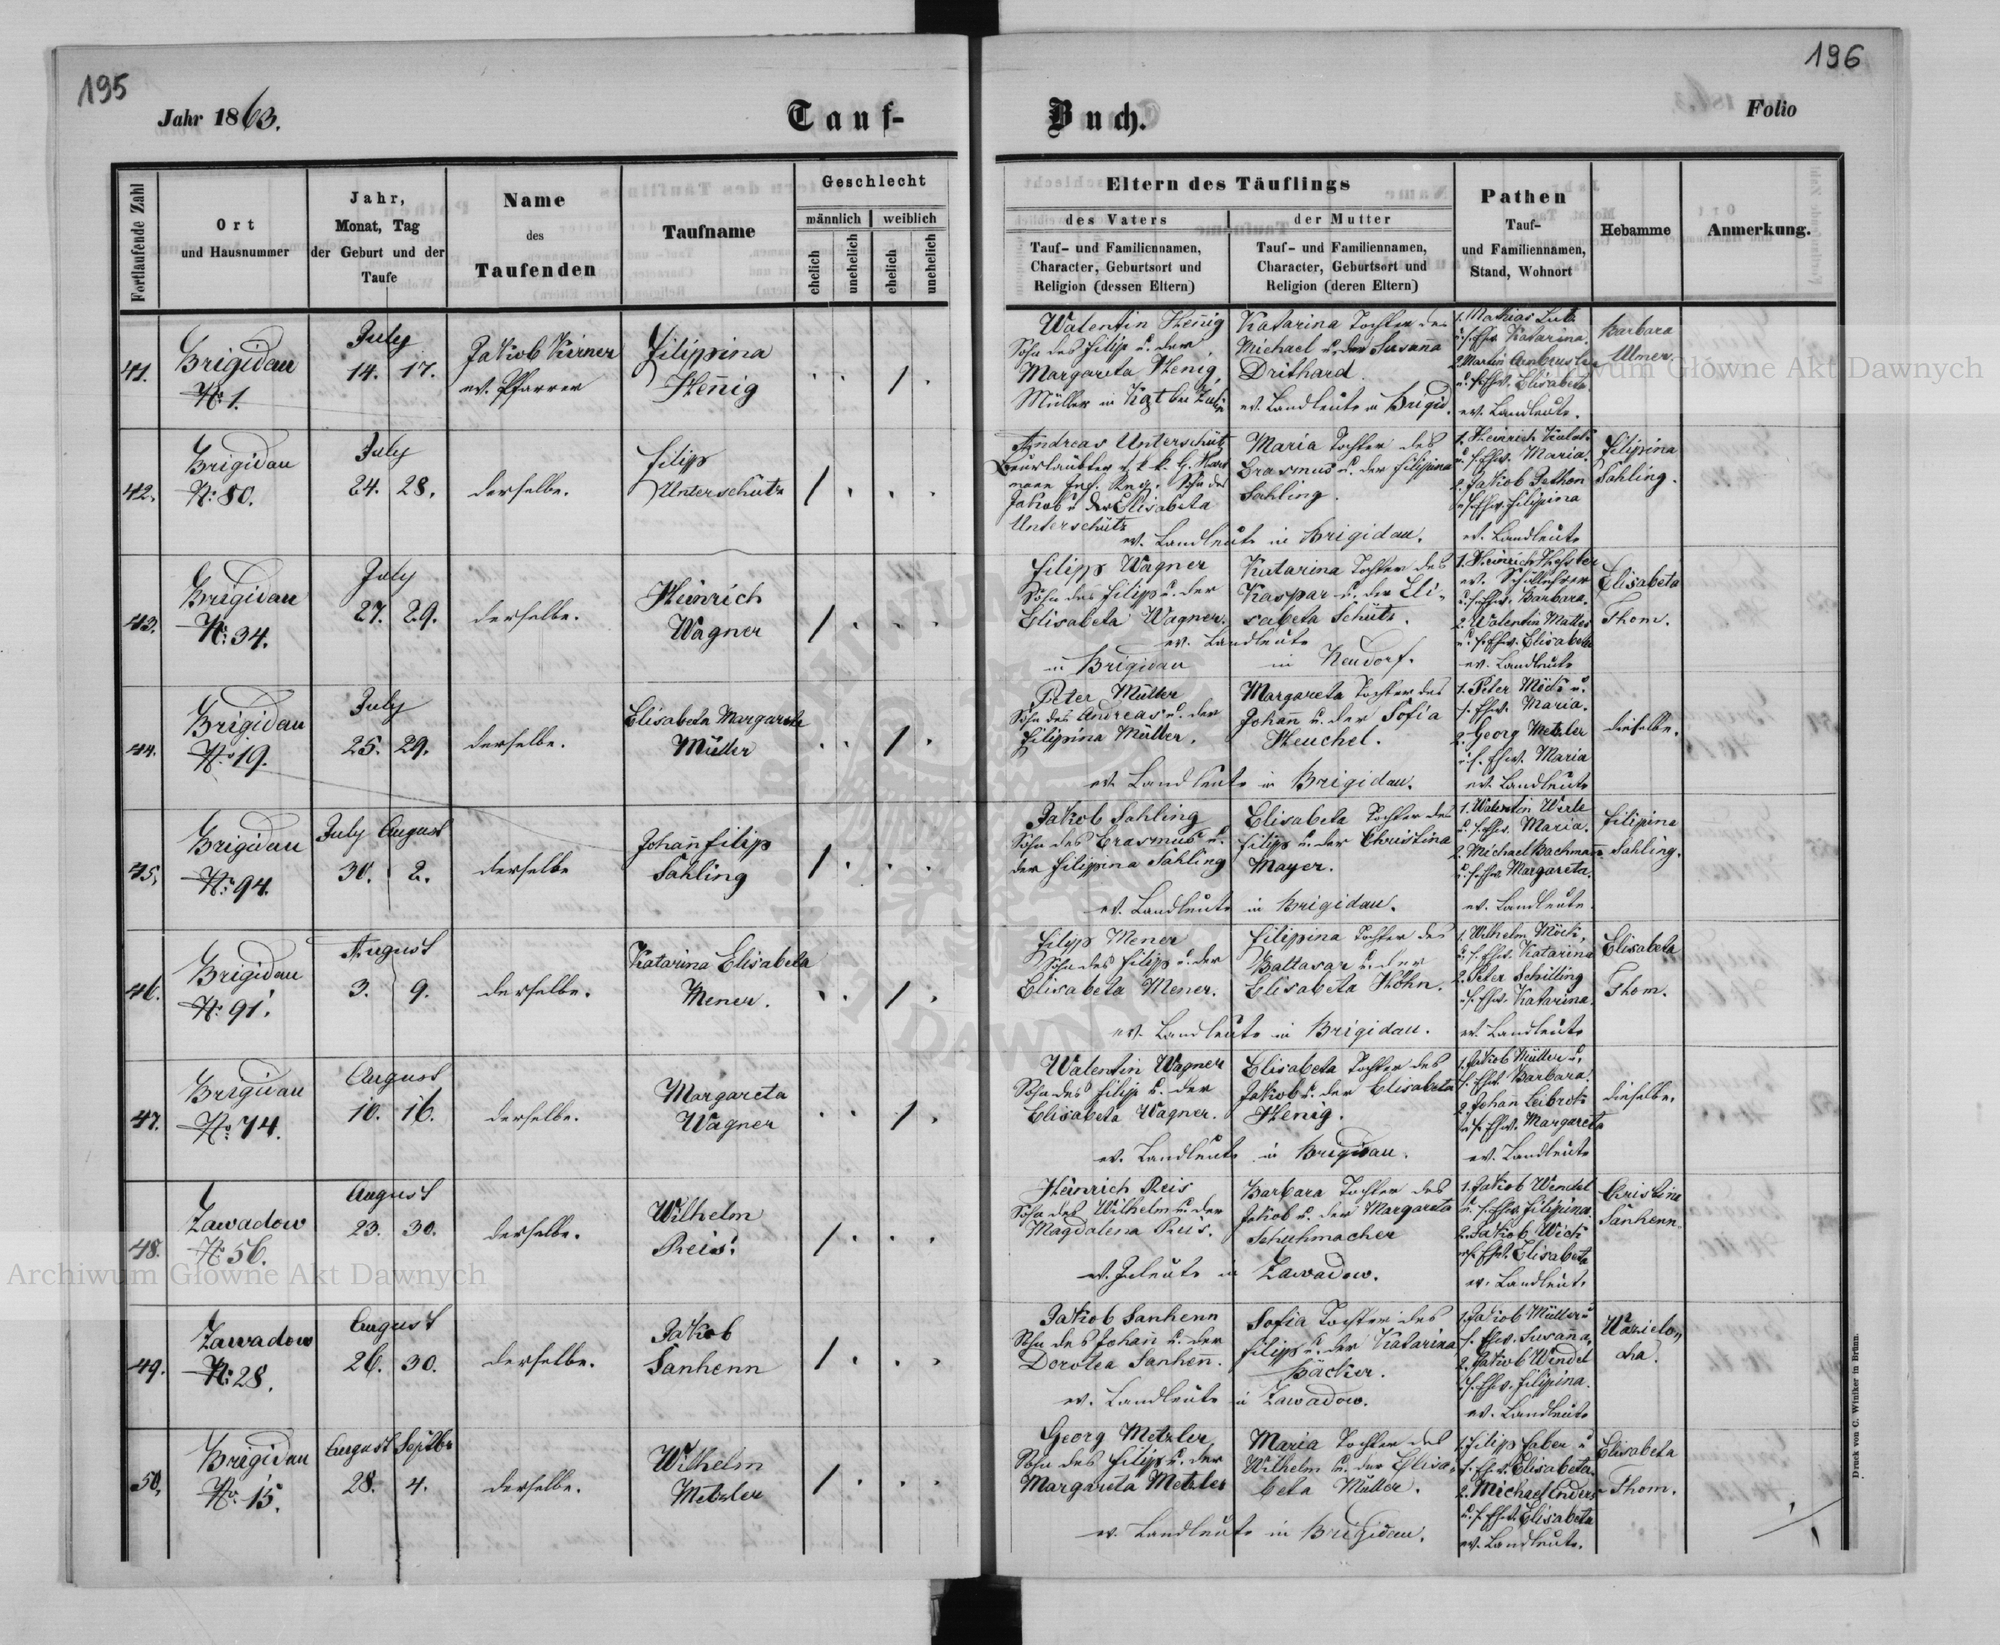 195
196
Jahr 1863.
Tauf-
Buch.
Folio
Fortlaufende Zahl
Ort
und Hausnummer
Jahr,
Monat, Tag
der Geburt und der
Taufe
Name
des
Taufenden
Taufname
Geschlecht
männlich
weiblich
ehelich
unehelich
ehelich
unehelich
Eltern des Täuflings
des Vaters
Tauf- und Familiennamen,
Character, Geburtsort und
Religion (dessen Eltern)
der Mutter
Tauf- und Familiennamen,
Character, Geburtsort und
Religion (deren Eltern)
Pathen
Tauf-
und Familiennamen,
Stand, Wohnort
Hebamme
Anmerkung.
41.
Brigidau
No 1.
July
14. 17.
Jakob Kirner
ev. Pfarrer
Filippina
Henig
Valentin Henig
Sohn des Filip u. der
Margareta Henig,
Müller in
Katarina Tochter des
Michael u. der Susanna
Drithard.
ev. Landleute in Brigid.
1. Mathias Lutz
u. s. Ehw. Katarina.
2. Martin Armbruster
u. s. Ehw. Elisabeta
ev. Landleute.
Barbara
Ulmer.
42.
Brigidau
No 80.
July
24. 28.
derselbe.
Filip
Unterschütz
Andreas Unterschütz
Beurlaubter
Sohn des
Jakob u. der Elisabeta
Unterschütz
Maria Tochter des
Erasmus u. der Filipina
Sahling.
ev. Landleute in Brigidau.
1. Heinrich
u. s. Ehw. Maria.
2. Jakob Pethon
u. s. Ehw. Filipina
ev. Landleute
Filipina
Sahling.
43.
Brigidau
No 34.
July
27. 29.
derselbe.
Heinrich
Wagner
Filipp Wagner
Sohn des Filip u. der
Elisabeta Wagner.
ev. Landleute
in Brigidau
Katarina Tochter des
Kaspar u. der Eli-
sabeta Schütz.
in Neudorf.
1. Heinrich
ev. Schullehrer
u. s. Ehw. Barbara.
2. Valentin Mattes
u. s. Ehw. Elisabeta
ev. Landleute
Elisabeta
Thom.
44.
Brigidau
No 19.
July
25. 29.
derselbe.
Elisabeta Margareta
Müller
Peter Müller
Sohn des Andreas u. der
Filipina Müller.
Margareta Tochter des
Johann u. der Sofia
Heuchel.
ev. Landleute in Brigidau.
1. Peter Möck u.
s. Ehw. Maria.
2. Georg Metzler
u. s. Ehw. Maria
ev. Landleute
dieselbe.
45.
Brigidau
No 94.
July August
30. 2.
derselbe
Johann Filip
Sahling
Jakob Sahling
Sohn des Erasmus u.
der Filippina Sahling
Elisabeta Tochter des
Filipp u. der Christina
Mayer.
ev. Landleute in Brigidau.
1. Valentin Werle
u. s. Ehw. Maria.
2. Michael Bachmann
u. s. Ehw. Margareta.
ev. Landleute.
Filipina
Sahling.
46.
Brigidau
No 91.
August
3. 9.
derselbe.
Katarina Elisabeta
Mener.
Filipp Mener
Sohn des Filipp u. der
Elisabeta Mener.
Filipina Tochter des
Baltasar u. der
Elisabeta Höhn.
ev. Landleute in Brigidau.
1. Wilhelm Möck,
u. s. Ehw. Katarina
2. Peter Schilling
u. s. Ehw. Katarina.
ev. Landleute
Elisabeta
Thom.
47.
Brigidau
No 74.
August
10. 16.
derselbe.
Margareta
Wagner
Valentin Wagner
Sohn des Filip u. der
Elisabeta Wagner.
Elisabeta Tochter des
Jakob u. der Elisabeta
Henig.
ev. Landleute in Brigidau.
1. Jakob Müller u.
s. Ehw. Barbara.
2. Johan Leibrock
u. s. Ehw. Margareta
ev. Landleute
dieselbe.
48.
Zawadow
No 56.
August
23. 30.
derselbe.
Wilhelm
Reis.
Heinrich Reis
Sohn des Wilhelm u. der
Magdalena Reis.
Barbara Tochter des
Jakob u. der Margareta
Schuhmacher
ev. Inleute in Zawadow.
1. Jakob Wendel
u. s. Ehw. Filipina.
2. Jakob Wick
u. s. Ehw. Elisabeta
ev. Landleute
Christine
Sanhenn.
49.
Zawadow
No 28.
August
26. 30.
derselbe.
Jakob
Sanhenn
Jakob Sanhenn
Sohn des Johan u. der
Dorotea Sanhenn.
Sofia Tochter des
Filipp u. der Katarina
Bäcker.
ev. Landleute in Zawadow.
1. Jakob Müller u
s. Ehw. Susanna.
2. Jakob Wendel
u. s. Ehw. Filipina.
ev. Landleute
50.
Brigidau
No 15.
August Septbr
28. 4.
derselbe.
Wilhelm
Metzler
Georg Metzler
Sohn des Filipp u. der
Margareta Metzler
Maria Tochter des
Wilhelm u. der Elisa-
beta Müller.
ev. Landleute in Brigidau.
1. Filipp Faber u
s. Ehw. Elisabeta.
2. Michael Enders
u. s. Ehw. Elisabeta
ev. Landleute.
Elisabeta
Thom.
Druck von C. Winiker in Brünn.
Archiwum Główne Akt Dawnych
Archiwum Główne Akt Dawnych